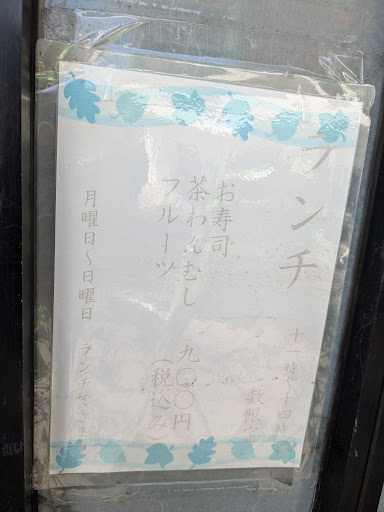 ランチ
十一時〜十四時
お寿司
茶わんむし
フルーツ
九〇〇円
(税込み)
月曜日〜日曜日 ランチ